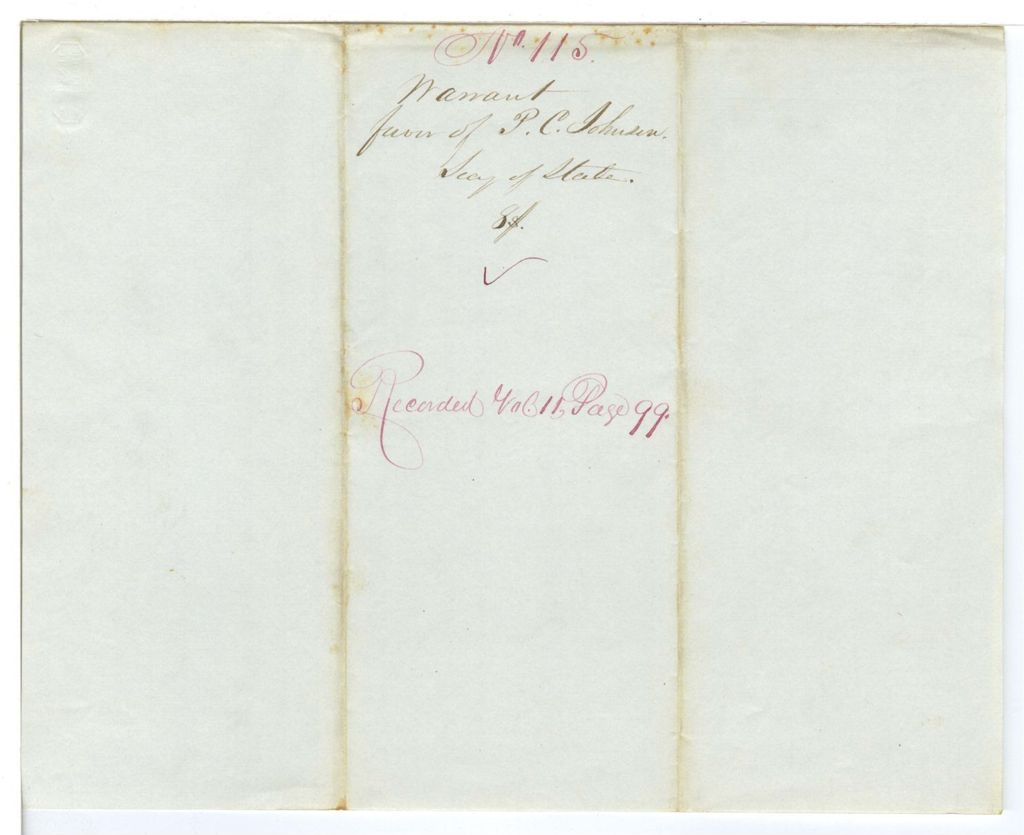 No. 115.
Warrant
favor of P. C. Johnson.
Secy of State.
Recorded Vol. 11, Page 99.